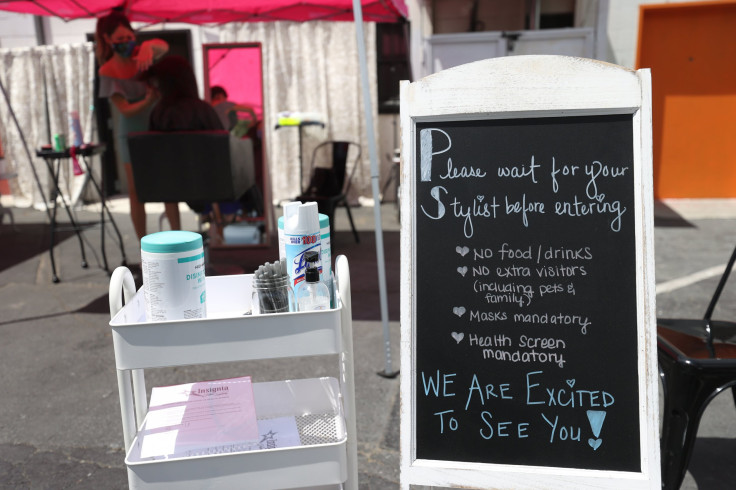 Please wait for your
Stylist before entering
No food/drinks
No extra visitors
(including pets &
family)
Masks mandatory
Health Screen
mandatory
We Are Excited
To See You!
Lysol
Insignia